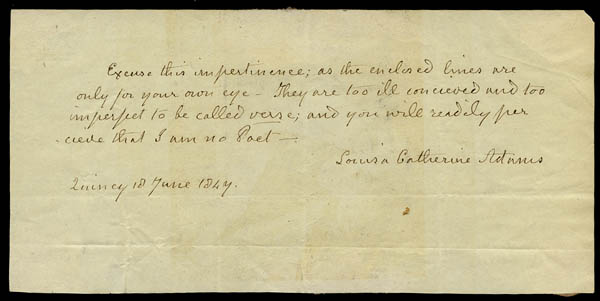 Excuse this impertinence; as the enclosed lines are
only for your own eye – They are too ill concieved and too
imperfect to be called verse; and you will readily per
-cieve that I am no Poet —
Louisa Catherine Adams
Quincy 18 June 1847.